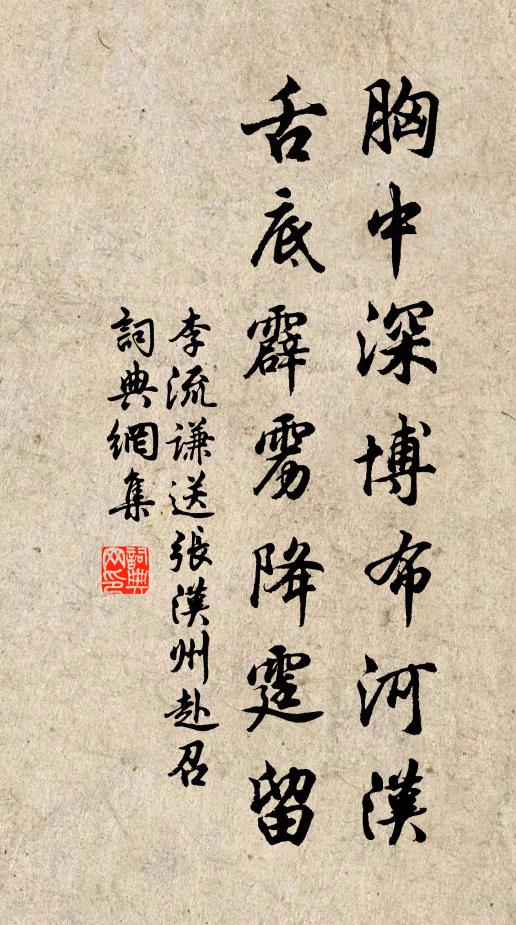 胸中深博布河漢
舌底霹雳降霆留
李流谦送張漢州赴召
詞典網集
詞典网印